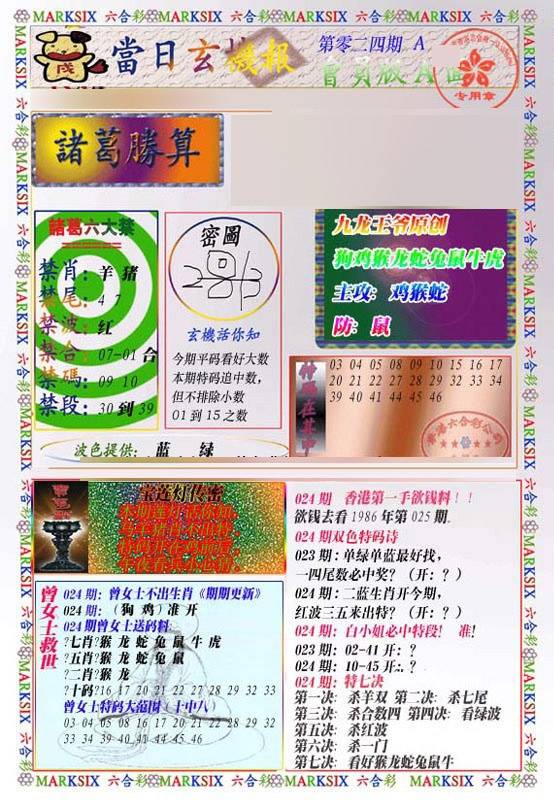 MARKSIX 六合彩 MARKSIX 六合彩 MARKSIX 六合彩 MARKSIX 六合彩 MARKSIX
當日玄機報
第零二四期 A
會員版A面
专用章
諸葛勝算
諸葛六大禁
禁肖: 羊 猪
禁尾: 4 7
禁波: 红
禁合: 07-01 合
禁碼: 09 10
禁段: 30 到 39
密圖
玄機活你知
今期平码看好大数
本期特码追中数,
但不排除小数
01 到 15 之数
九龙王爷原创
狗鸡猴龙蛇兔鼠牛虎
主攻: 鸡猴蛇
防: 鼠
特码在其中
03 04 05 08 09 10 15 16 17
20 21 22 27 28 29 32 33 34
39 40 41 44 45 46
波色提供: 蓝 绿
宝莲灯传密
024 期 香港第一手欲钱料！！
欲钱去看 1986 年第 025 期.
024 期双色特码诗
023 期: 单绿单蓝最好找,
一四尾数必中奖? (开: ? )
024 期: 二蓝生肖开今期,
红波三五来出特? (开: ? )
024 期: 白小姐必中特段! 准!
023 期: 02-41 开: ?
024 期: 10-45 开:. ?
024 期: 特七决
第一决: 杀羊双 第二决: 杀七尾
第三决: 杀合数四 第四决: 看绿波
第五决: 杀红波
第六决: 杀一门
第七决: 看好猴龙蛇兔鼠牛
曾女士救世
024 期: 曾女士不出生肖《期期更新》
024 期: (狗 鸡) 准 开
024 期曾女士送码料:
?七肖?猴 龙 蛇 兔 鼠 牛 虎
?五肖?猴 龙 蛇 兔 鼠
?二肖?猴 龙
?十码?16 17 20 21 22 27 28 29 32 33
曾女士特码大范围 (十中八)
03 04 05 08 16 17 20 21 22 28 29 32
33 34 39 40 41 44 45 46
MARKSIX 六合彩 MARKSIX 六合彩 MARKSIX 六合彩 MARKSIX 六合彩 MARKSIX